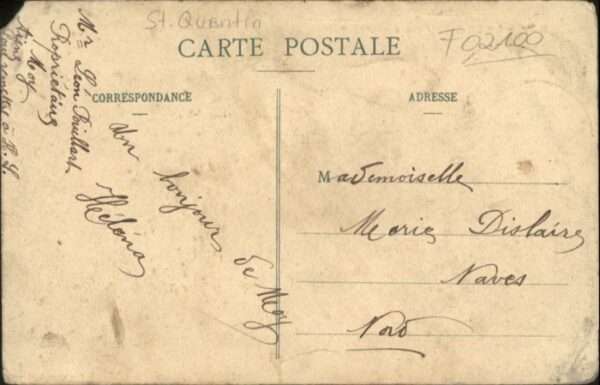 St. Quentin
CARTE POSTALE
F02100
CORRESPONDANCE
ADRESSE
Mr Léon
Propriétaire
à Moy
un bonjour de Moy
Héléna
Mademoiselle
Marie Dislaire
Naves
Nord